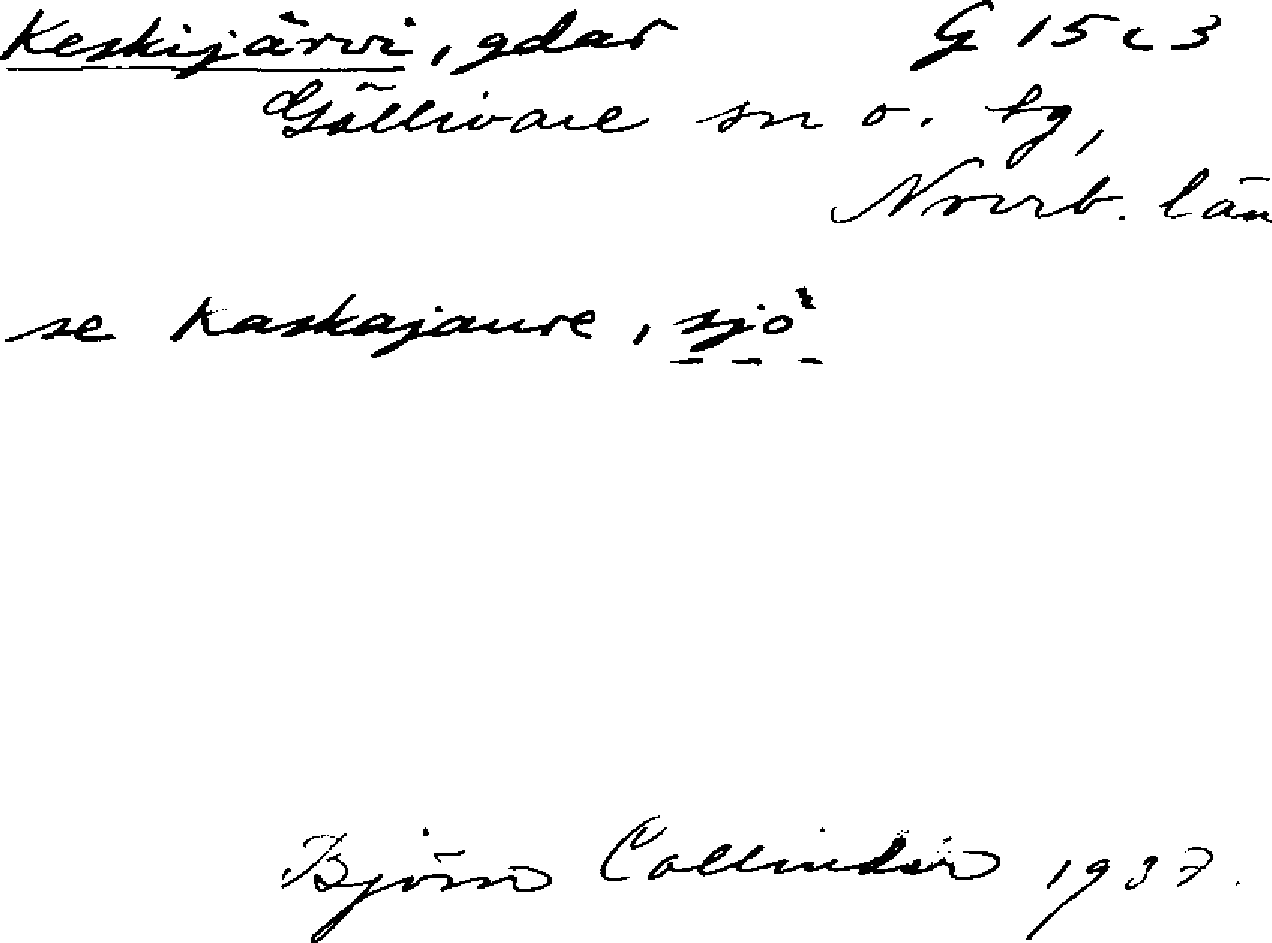 Keskijärvi, gdar G 15 c 3
Gällivare sn o. tg,
Norrb. län
se Kaskajaure, sjö
Björn Collinder 1937.